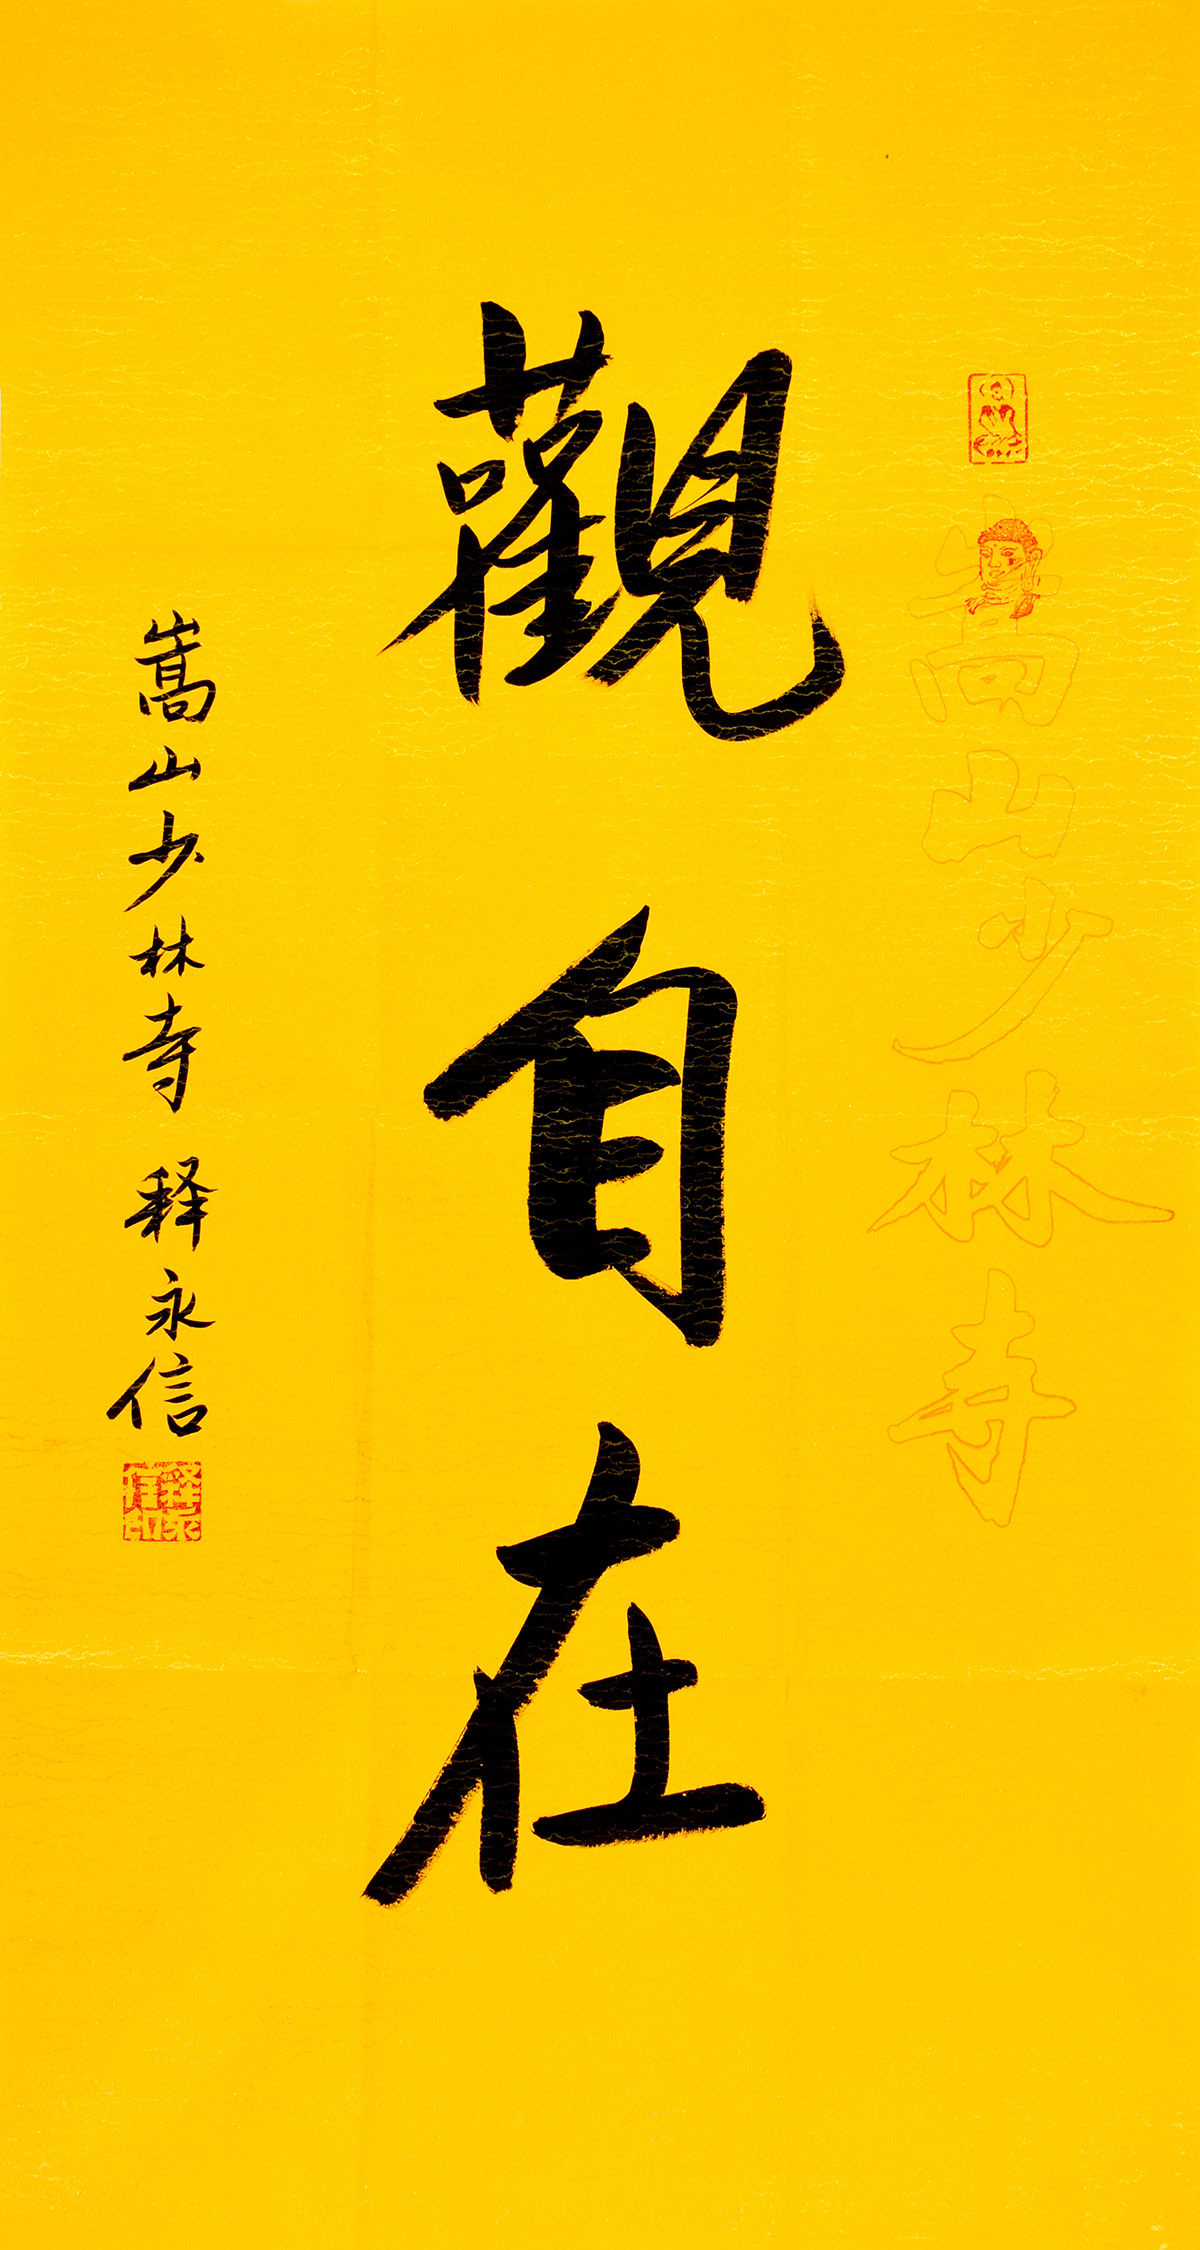 嵩山少林寺
觀自在
嵩山少林寺 释永信
释永信印